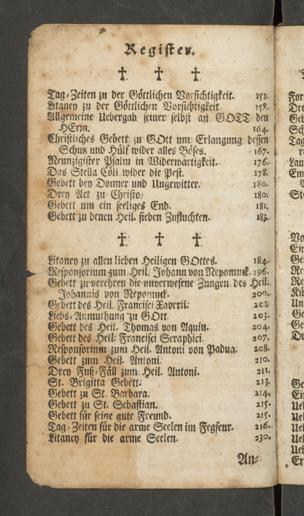 Register.
† † †
Tag-Zeiten zu der Göttlichen Vorsichtigkeit. 153.
Litaney zu der Göttlichen Vorsichtigkeit 158.
Allgemeine Uebergab seiner selbst an GOTT den
HErrn. 164.
Christliches Gebett zu GOtt um Erlangung dessen
Schutz und Hülf wider alles Böses. 167.
Neunzigister Psalm in Widerwärtigkeit. 176.
Das Stella Cöli wider die Pest. 178.
Gebett bey Donner und Ungewitter. 180.
Drey Act zu Christo. 180.
Gebett um ein seeliges End. 181.
Gebett zu denen Heil. sieben Zufluchten. 183.
† † †
Litaney zu allen lieben Heiligen GOttes. 184.
Responsorium zum Heil. Johann von Nepomuck. 196.
Gebett zu verehren die unverwesene Zungen des Heil.
Johannis von Nepomuck. 200.
Gebett des Heil. Francisci Xaverii. 201.
Liebs-Anmuthung zu GOtt. 203.
Gebett des Heil. Thomas von Aquin. 204.
Gebett des Heil. Francisci Seraphici. 207.
Responsorium zum Heil. Antoni von Padua. 208.
Gebett zum Heil. Antoni. 210.
Drey Fuß-Fäll zum Heil. Antoni. 211.
St. Brigitta Gebett. 213.
Gebett zu St. Barbara. 214.
Gebett zu St. Sebastian. 215.
Gebett für seine gute Freund. 215.
Tag-Zeiten für die arme Seelen im Fegfeur. 216.
Litaney für die arme Seelen. 230.
An-